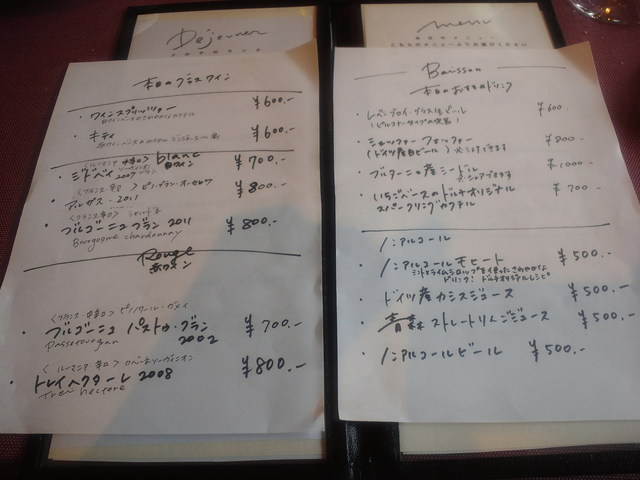 Déjeuner
本日のグラスワイン
・ワインスプリッツァー ¥600.-
・キティ ¥600.-
blanc
白ワイン
・ミドベイ 2009 ¥700.-
・アルザス・2011 ¥800.-
・ブルゴーニュブラン 2011 ¥800.-
Bourgogne chardonnay
Rouge
赤ワイン
・ブルゴーニュ パストゥ・グラン ¥700.-
2002
〈ルーマニア 辛口〉カベルネソーヴィニオン
・トレイヘクターレ 2008 ¥800.-
Trei hectare
menu
Boisson
本日のおすすめドリンク
・レーベンブロイ・グラス生ビール ¥600.
・シェッファーフェッファー ¥800.-
(ドイツ産白ビール)
・ブルターニュ産シードル ¥1000.-
・いちごベースのドルチオリジナル ¥700.-
スパークリングカクテル
ノンアルコール
・ノンアルコールモヒート ¥500.-
ミントとライムシロップを使ったさわやかな
ドリンク! ドルチオリジナルレシピ
・ドイツ産カシスジュース ¥500.-
・青森ストレートりんごジュース ¥500.-
・ノンアルコールビール ¥500.-